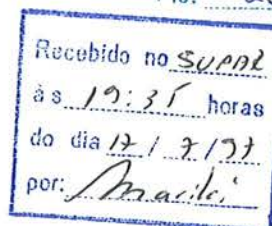 Recebido no SUPAR
às 19:35 horas
do dia 17 / 7 / 97
por: Marilei